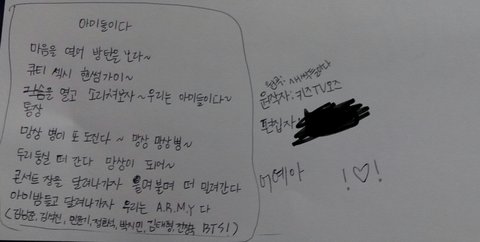 아이돌이다
마음을 열어 방탄을 보다~
큐티 섹시 핸썸가이~
가슴을 열고 소리쳐보자~우리는 아이돌이다~
통장
망상 병이 또 도진다~ 망상 망상병~
두리둥실 떠 간다 망상이 되어~
콘서트 장을 달려나가자 울며불며 떠 밀려간다
아이밤들고 달려나가자 우리는 A.R.M.Y 다
(김남준, 김석진, 민윤기, 정호석, 박지민, 김태형, 전정국 BTS!)
원곡: 새싹들이다
원작자: 키즈TV모즈
편집자:
예아 !♡!